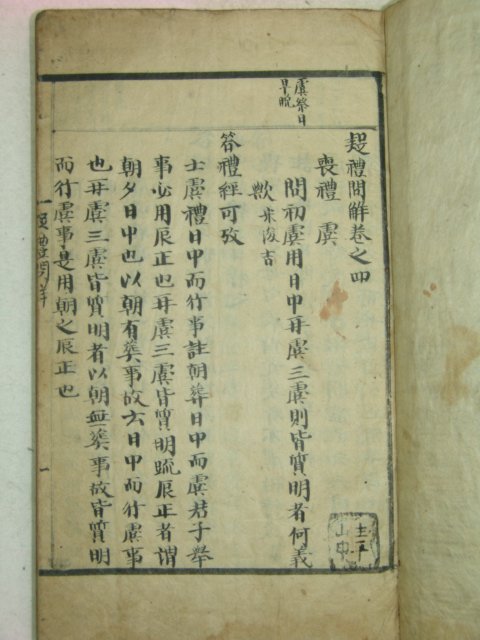 虞祭日
早晚
疑禮問解卷之四
喪禮 虞
問初虞用日中再虞三虞則皆質明者何義
歟 宋浚吉
答禮經可攷
士虞禮日中而行事註朝葬日中而虞君子擧
事必用辰正也再虞三虞皆質明疏辰正者謂
朝夕日中也以朝有葬事故云日中而行虞事
也再虞三虞皆質明者以朝無葬事故皆質明
而行虞事是用朝之辰正也
疑禮問解 一